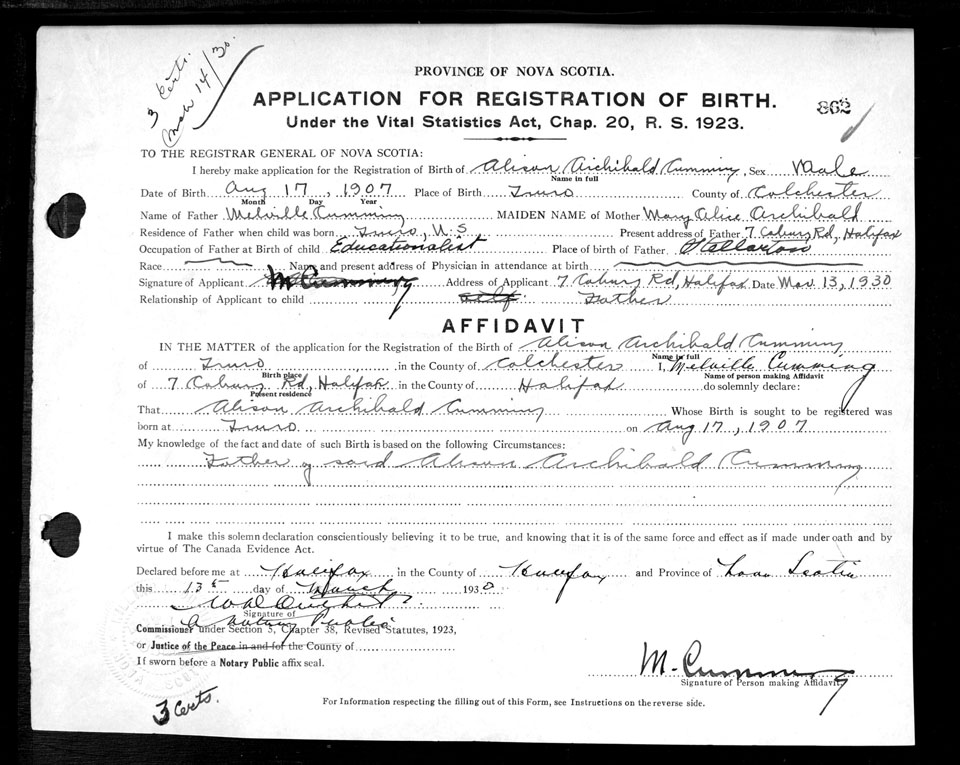 3 Certs.
Mch 14/30.
PROVINCE OF NOVA SCOTIA.
APPLICATION FOR REGISTRATION OF BIRTH.
862
Under the Vital Statistics Act, Chap. 20, R. S. 1923.
TO THE REGISTRAR GENERAL OF NOVA SCOTIA:
I hereby make application for the Registration of Birth of Alison Archibald Cumming, Sex Male
Name in full
Date of Birth Aug 17, 1907 Place of Birth Truro County of Colchester
Month Day Year
Name of Father Melville Cumming MAIDEN NAME of Mother Mary Alice Archibald
Residence of Father when child was born Truro, N.S. Present address of Father 7 Coburg Rd, Halifax
Occupation of Father at Birth of child Educationalist Place of birth of Father Stellarton
Race Name and present address of Physician in attendance at birth
Signature of Applicant M Cumming Address of Applicant 7 Coburg Rd, Halifax Date Mar. 13, 1930
Relationship of Applicant to child self Father
AFFIDAVIT
IN THE MATTER of the application for the Registration of the Birth of Alison Archibald Cumming
Name in full
of Truro in the County of Colchester I, Melville Cumming
Birth place Name of person making Affidavit
of 7 Coburg Rd, Halifax in the County of Halifax do solemnly declare:
Present residence
That Alison Archibald Cumming Whose Birth is sought to be registered was
born at Truro on Aug 17, 1907
My knowledge of the fact and date of such Birth is based on the following Circumstances:
Father of said Alison Archibald Cumming
I make this solemn declaration conscientiously believing it to be true, and knowing that it is of the same force and effect as if made under oath and by
virtue of The Canada Evidence Act.
Declared before me at Halifax in the County of Halifax and Province of Nova Scotia
this 13th day of March 1930
Signature of
A Notary Public
Commissioner under Section 5, Chapter 38, Revised Statutes, 1923,
or Justice of the Peace in and for the County of
If sworn before a Notary Public affix seal.
M. Cumming
Signature of Person making Affidavit
3 Certs.
For Information respecting the filling out of this Form, see Instructions on the reverse side.